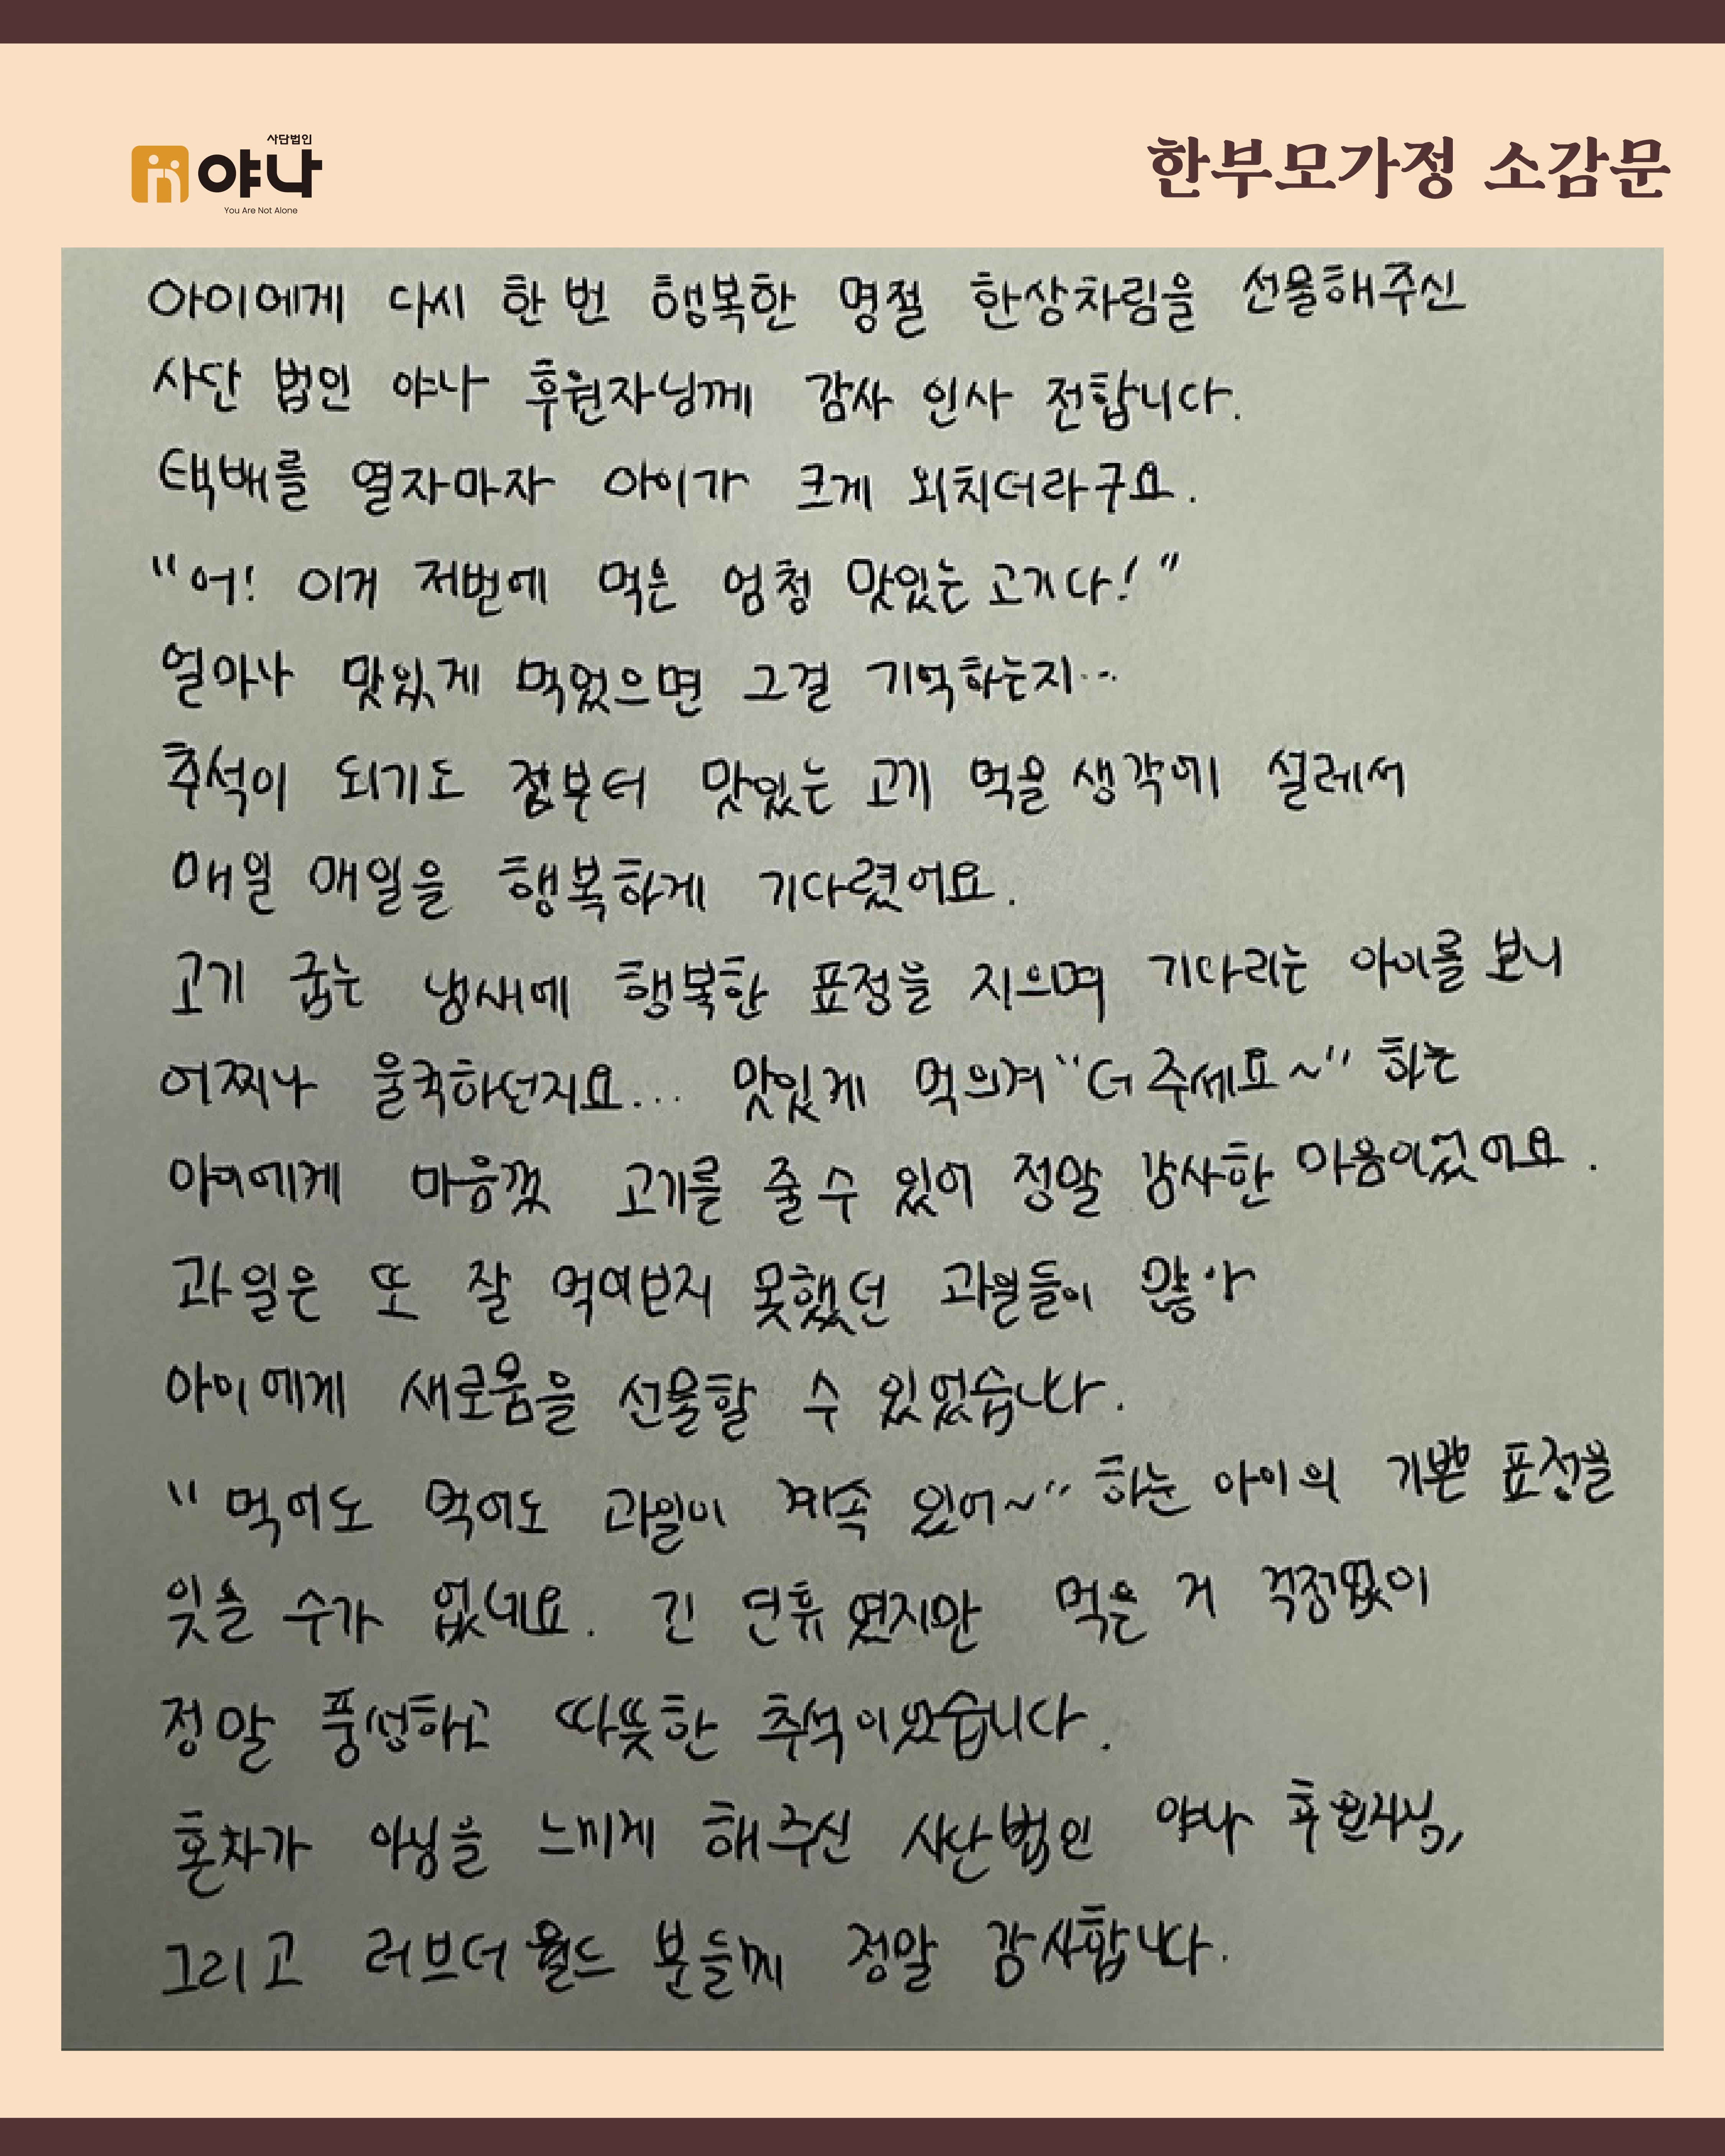 사단법인
야나
You Are Not Alone
한부모가정 소감문
아이에게 다시 한 번 행복한 명절 한상차림을 선물해주신
사단 법인 야나 후원자님께 감사 인사 전합니다.
택배를 열자마자 아이가 크게 외치더라구요.
"어! 이거 저번에 먹은 엄청 맛있는 고기다!"
얼마나 맛있게 먹었으면 그걸 기억하는지...
추석이 되기도 전부터 맛있는 고기 먹을 생각에 설레서
매일 매일을 행복하게 기다렸어요.
고기 굽는 냄새에 행복한 표정을 지으며 기다리는 아이를 보니
어찌나 울컥하던지요... 맛있게 먹으며 "더 주세요~" 하는
아이에게 마음껏 고기를 줄 수 있어 정말 감사한 마음이었어요.
과일은 또 잘 먹여보지 못했던 과일들이 많아
아이에게 새로움을 선물할 수 있었습니다.
"먹어도 먹어도 과일이 계속 있어~" 하는 아이의 기쁜 표정을
잊을 수가 없네요. 긴 연휴였지만 먹을 거 걱정없이
정말 풍성하고 따뜻한 추석이었습니다.
혼자가 아님을 느끼게 해주신 사단법인 야나 후원자님,
그리고 러브더월드 분들께 정말 감사합니다.